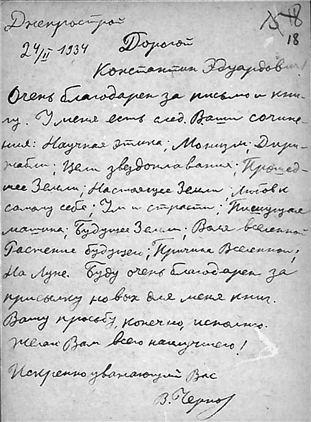 Днепрострой
15 18
18
24/II 1934
Дорогой
Константин Эдуардович!
Очень благодарен за письмо и кни-
гу. У меня есть след. Ваши сочине-
ния: Научная этика; Монизм; Дири-
жабли; Цели звездоплавания; Прошед-
шее Земли; Настоящее Земли; Любовь к
самому себе; Ум и страсти; Пишущая
машина; Будущее Земли; Воля вселенной
Растение будущего; Причина Вселенной;
На Луне. Буду очень благодарен за
присылку новых для меня книг.
Вашу просьбу, конечно, исполню.
Желаю Вам всего наилучшего!
Искренно уважающий Вас
В. Чернов